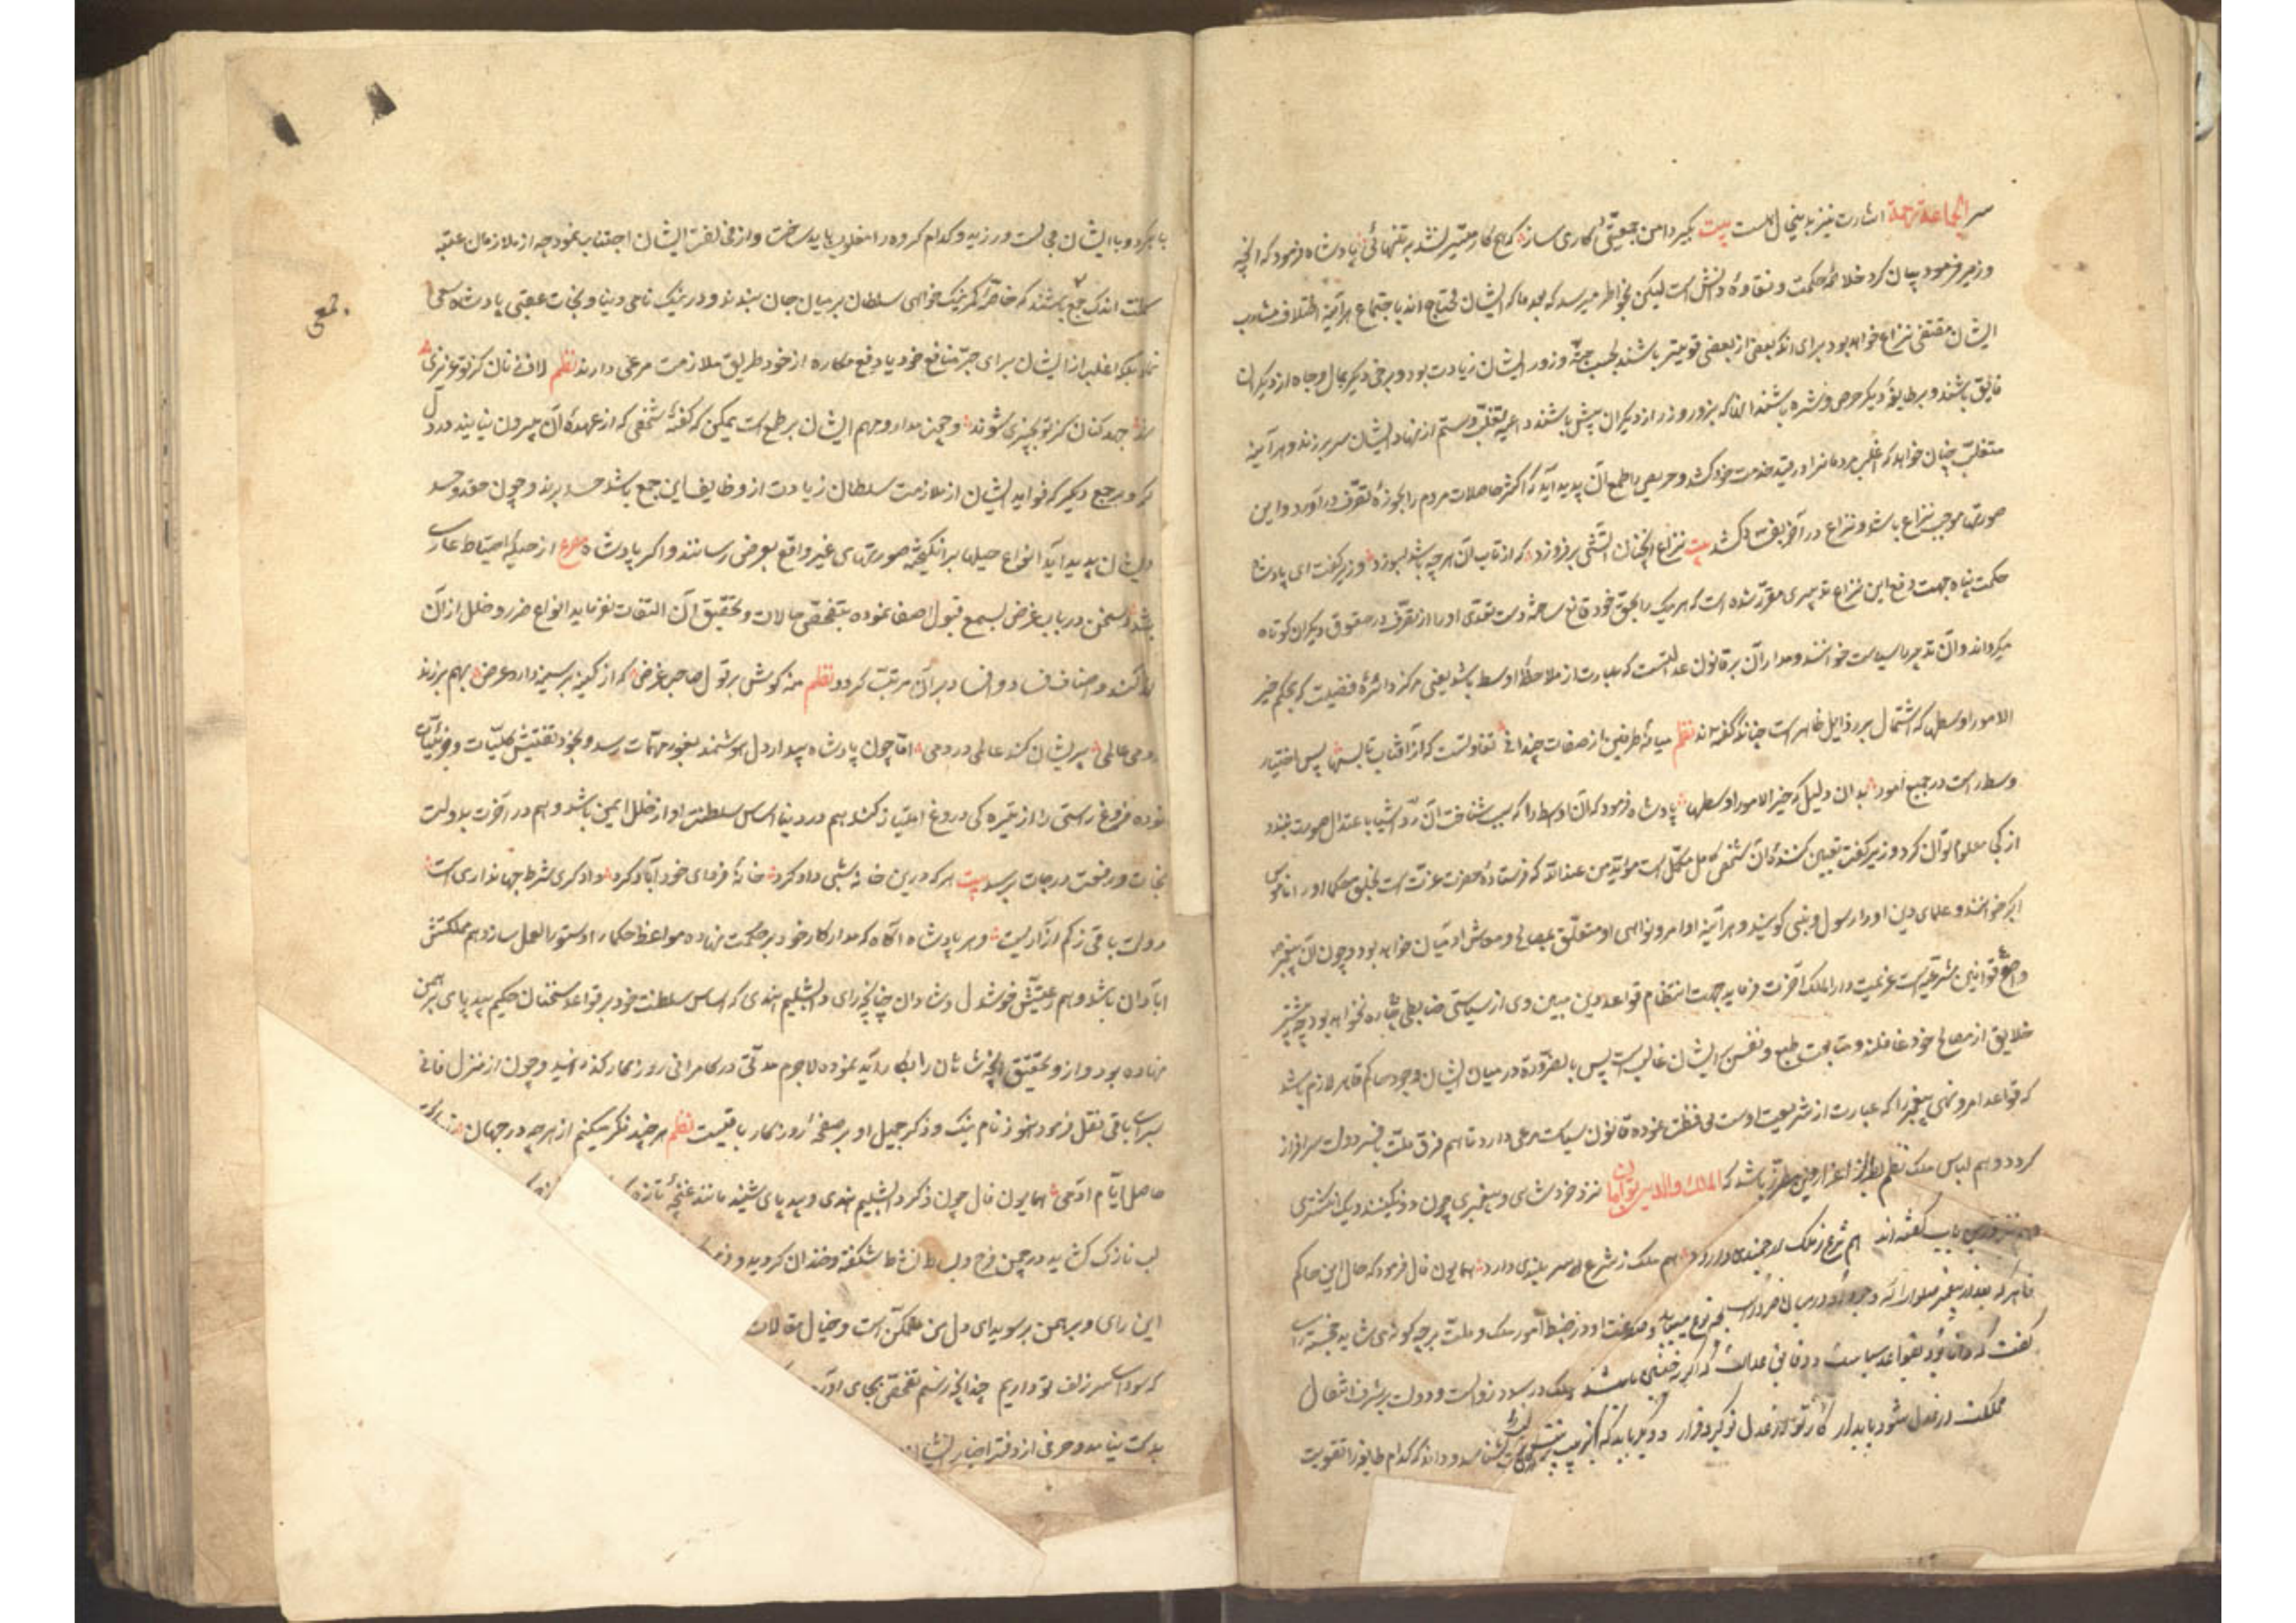 سر الجماعة رحمة اشارت نیز بدینحال است بیت بگیر دامن جمعیتی و کاری ساز که هیچ کار میسر نشد به تنهائی پادشاه فرمود که آنچه
وزیر فرمود بیان کرد خلاصهٔ حکمت و نقاوهٔ دانش است لیکن بخاطر میرسد که بعد ما که ایشان محتاج اند باجتماع هرآینه اختلاف مشارب
ایشان مقتضی نزاع خواهد بود برای آنکه بعضی از بعضی قویتر باشند بحسب جثه و زور ایشان زیادت بود و برخی دیگر بمال و جاه از دیگران
فایق باشند و بر طایفهٔ دیگر حرص و شره باشند آنانکه بزور و زر از دیگران بیش باشند داعیهٔ تغلب و ستم از نهاد ایشان سر برزند و هرآینه
متغلب چنان خواهد که اغلب مردمانرا در قید خدمت خود کشد و حریص را طمع آن پدید آید که اکثر حاصلات مردم را بحوزهٔ تصرف درآورد و این
صورتها موجب نزاع باشد و نزاع در آخر بفساد کشد بیت نزاع آنچنان آتشی برفروزد که از تاب آن هر چه باشد بسوزد وزیر گفت ای پادشاه
حکمت پناه جهت دفع این نزاع تدبیری مقرر شده است که هر یک را بحق خود قانع ساخته دست تعدی او را از تصرف در حقوق دیگران کوتاه
میگرداند و آن تدبیر را سیاست خوانند و مدار آن بر قانون عدالتست که عبارت از ملاحظهٔ اوسط باشد یعنی مرکز دائرهٔ فضیلت که بحکم خیر
الامور اوسطها که اشتمال بر رذایل ظاهر است چنانکه گفته اند نظم میانهٔ طرفین از صفات چندانی تفاوتست که از آفتاب تا بسها پس اختیار
وسط راست در جمیع امور بدان دلیل که خیر الامور اوسطها پادشاه فرمود که آن اوسط را که بسبب شناخت آن رد اشیا با عتدال صورت بندد
از کجا معلوم توان کرد وزیر گفت تعیین کنندهٔ آن شخص کامل مکمل است مؤید من عند الله که فرستادهٔ حضرت عزتست بخلق حکما او را ناموس
اکبر خوانند و علمای دین او را رسول و نبی گویند و هرآینه اوامر و نواهی او متعلق بمصالح معاش آدمیان خواهد بود و چون آن پیغمبر
واضع قوانین شرعیه است عزیمت دارالملک آخرت فرماید جهت انتظام قواعد دین مبین وی از سیاستی ضابطی چاره نخواهد بود چه بیشتر
خلایق از مصالح خود غافلند و متابعت طبع و نفس بر ایشان غالب است پس بالضرورة در میان ایشان وجود حاکم قاهر لازم باشد
که قواعد امر و نهی پیغمبر را که عبارت از شریعت اوست محافظت نموده قانون سیاست مرعی دارد تا هم فرق ملت بافسر دولت سرافراز
گردد و هم لباس ملک بطراز اعزاز دین مطرز باشد که الملک والدین توأمان نزد خرد شاهی و پیغمبری چون دو نگینند و یک انگشتری
و درین باب گفته اند هم شرع ز ملک ارجمندی دارد هم ملک ز شرع سر بلندی دارد همایون فال فرمود که حال این حاکم
قاهر که بعد از پیغمبر وجود او در میان ضرورت است بچه نوع میباید و صفت او در ضبط امور ملک و ملت بر چه گونه می شاید خجسته رای
گفت که دانا بود بقواعد سیاست و دقایق عدالت که اگر نه چنین باشد ملک در صدد زوالست و دولت بر شرف انتقال
مملکت از عدل شود پایدار کار تو از عدل تو گیرد قرار و دیگر باید که مراتب بشناسد و داند که کدام طایفه را تقویت
باید کرد و با ایشان مجالست ورزید و کدام گروه را مغلوب باید ساخت و از مخالفت ایشان اجتناب نمود چه از ملازمان عتبهٔ
سلطنت اندک جمع باشند که خاصهٔ کمر نیک خواهی سلطان بر میان جان بندند و در نیک نامی دنیا و نجات عقبی پادشاه سعی
نمایند بلکه اغلب از ایشان برای جر منافع خود یا دفع مکاره از خود طریق ملازمت مرعی دارند نظم لاف زنان کز تو عزیزی
شوند جهد کنان کز تو بچیزی شوند و چون مدار و مهم ایشان بر طمع است یمکن که کینهٔ شخصی که از عهدهٔ آن بیرون نیایند در دل
گیرد و بر جمع دیگر که فواید ایشان از ملازمت سلطان زیادت از وظایف این جمع باشد حسد برند و چون حقد و حسد
در ایشان پدید آید انواع حیلها برانگیخته صورتهای غیر واقع بعرض رسانند و اگر پادشاه مصرع از حلیهٔ احتیاط عاری
باشد و سخن ارباب غرض بسمع قبول اصغا نموده بتفحص حالات و تحقیق آن التفات نفرماید انواع ضرر و خلل از آن
تولد کند و اصناف فساد و افساد بر آن مرتب گردد نظم منه گوش بر قول صاحب غرض که از کینه بر سینه دارد مرض بهم برزند
در دمی عالمی پریشان کند عالمی در دمی اما چون پادشاه بیدار دل هوشمند بغور مهمات رسد و بخود تفتیش کلیات و جزئیات
نموده فروغ راستی را از تیره کی دروغ امتیاز کند هم در دنیا اساس سلطنت او از خلل ایمن باشد و هم در آخرت بدولت
نجات و رفعت درجات برسد بیت هر که درین خانه شبی داد کرد خانهٔ فردای خود آباد کرد داد گری شرط جهانداری است
دولت باقی ز کم آزاریست و هر پادشاه آگاه که مدار کار خود بر حکمت نهاده مواعظ حکما را دستورالعمل سازد هم مملکتش
آبادان باشد و هم رعیتش خوشدل و شادان چنانچه رای دابشلیم هندی که اساس سلطنت خود بر قواعد سخنان حکیم بیدپای برهمن
نهاده بود و از و تحقیق آنچه شاهان را بکار آید نموده لاجرم مدتی در کامرانی روزگار گذرانید و چون از منزل فانی
بسرای باقی نقل فرمود هنوز نام نیک و ذکر جمیل او بر صفحهٔ روزگار باقیست نظم هر چند فکر میکنم از هر چه در جهان
حاصل ایام آدمی همایون فال چون ذکر دابشلیم هندی و بیدپای شنید مانند غنچهٔ تازه
لب نازک گشاید در چمن فرح و بساط نشاط شکفته و خندان گردید و
این رای و برهمن بر سویدای دل من متمکن است و خیال مقالات
که سودای سر زلف تو داریم چندانچه رسم تفحص بجای
بدست نیامد و حرفی از دفتر اخبار ایشان
جمعی